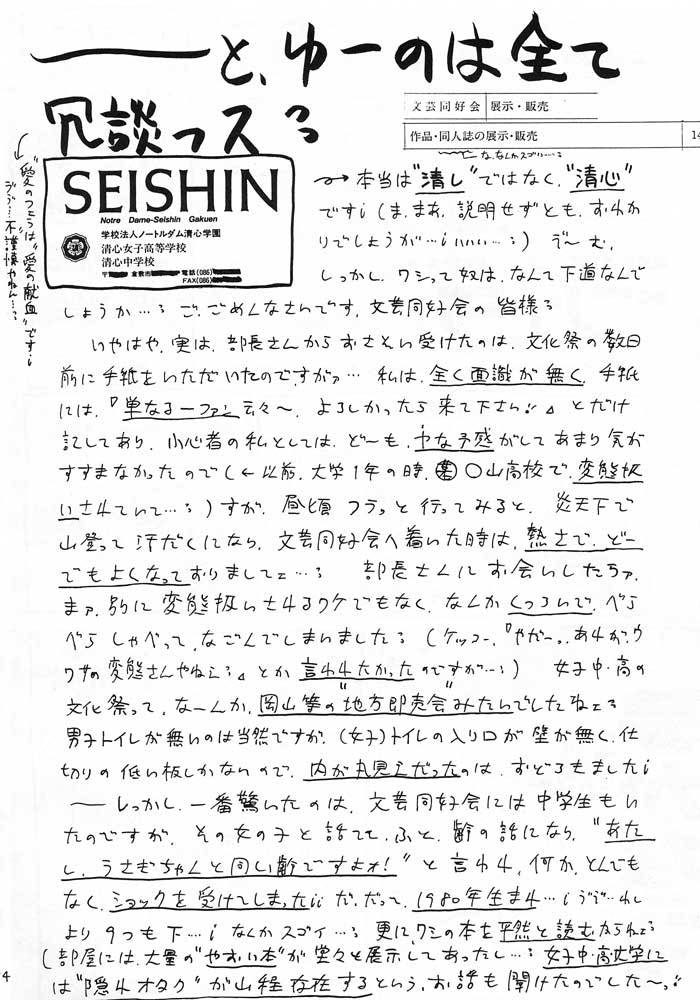 ――と、ゆーのは全て
冗談っス
文芸同好会 展示・販売
作品・同人誌の展示・販売 14
な、なんかスゴい…
SEISHIN
Notre Dame-Seishin Gakuen
学校法人ノートルダム清心学園
清心女子高等学校
清心中学校
〒 倉敷市 電話(086)
FAX(086)
"愛のフェラは"愛の献血"です
不謹慎やねん…
→本当は"清し"ではなく、"清心"
です(ま、まぁ、説明せずとも、おわか
りでしょうが…いいい…)ゔ〜む。
しっかし、ワシって奴は、なんて下道なんで
しょうか…ご、ごめんなさいです。文芸同好会の皆様
いやはや、実は、部長さんからおさそい受けたのは、文化祭の数日
前に手紙をいただいたのですがァ…私は、全く面識が無く、手紙
には、『単なる一ファン云々〜、よろしかったら来て下さい』とだけ
記してあり、小心者の私としては、ど〜も、ヤな予感がしてあまり気が
すすまなかったので(←以前、大学1年の時、〇山高校で、変態扱
いされていて…)すが、昼頃フラっと行ってみると、炎天下で
山登って汗だくになり、文芸同好会へ着いた時は、熱さで、どー
でもよくなっておりましてェ…部長さんにお会いしたらァ、
まァ、別に変態扱いされるワケでもなく、なんかくつろいで、ベら
ベらしゃべって、なごんでしまいました(ケッコー、『やだーっ、あれが、ウ
ワサの変態さんやねえ』とか言われたかったのですが…)女子中・高の
文化祭って、なーんか、岡山等の"地方即売会"みたいでしたねェ
男子トイレが無いのは当然ですが、(女子)トイレの入り口が壁が無く、仕
切りの低い板しかないので、内が丸見えだったのは、おどろきました
――しっかし、一番驚いたのは、文芸同好会には中学生もい
たのですが、その女の子と話してて、ふと、齢の話になり、"あた
し、うさぎちゃんと同い齢ですよォ!"と言われ、何か、とんでも
なく、ショックを受けてしまった だ、だって、1980年生まれ…ゔゔ…わし
より9つも下…なんかスゴイ…更に、ワシの本を平然と読むからねェ
(部屋には、大量の"やおい本"が堂々と展示してあったし…女子中・高・大学に
は"隠れオタク"が山程存在するという、お話も聞けたのでした〜っ
4